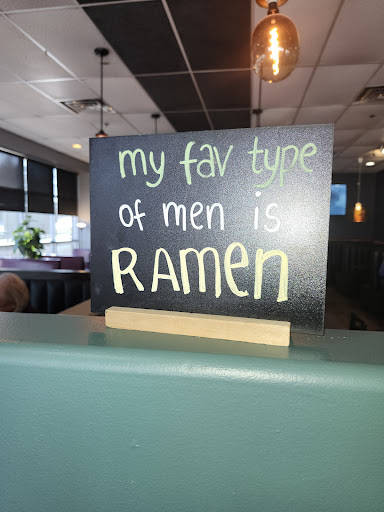 my fav type
of men is
RAMen